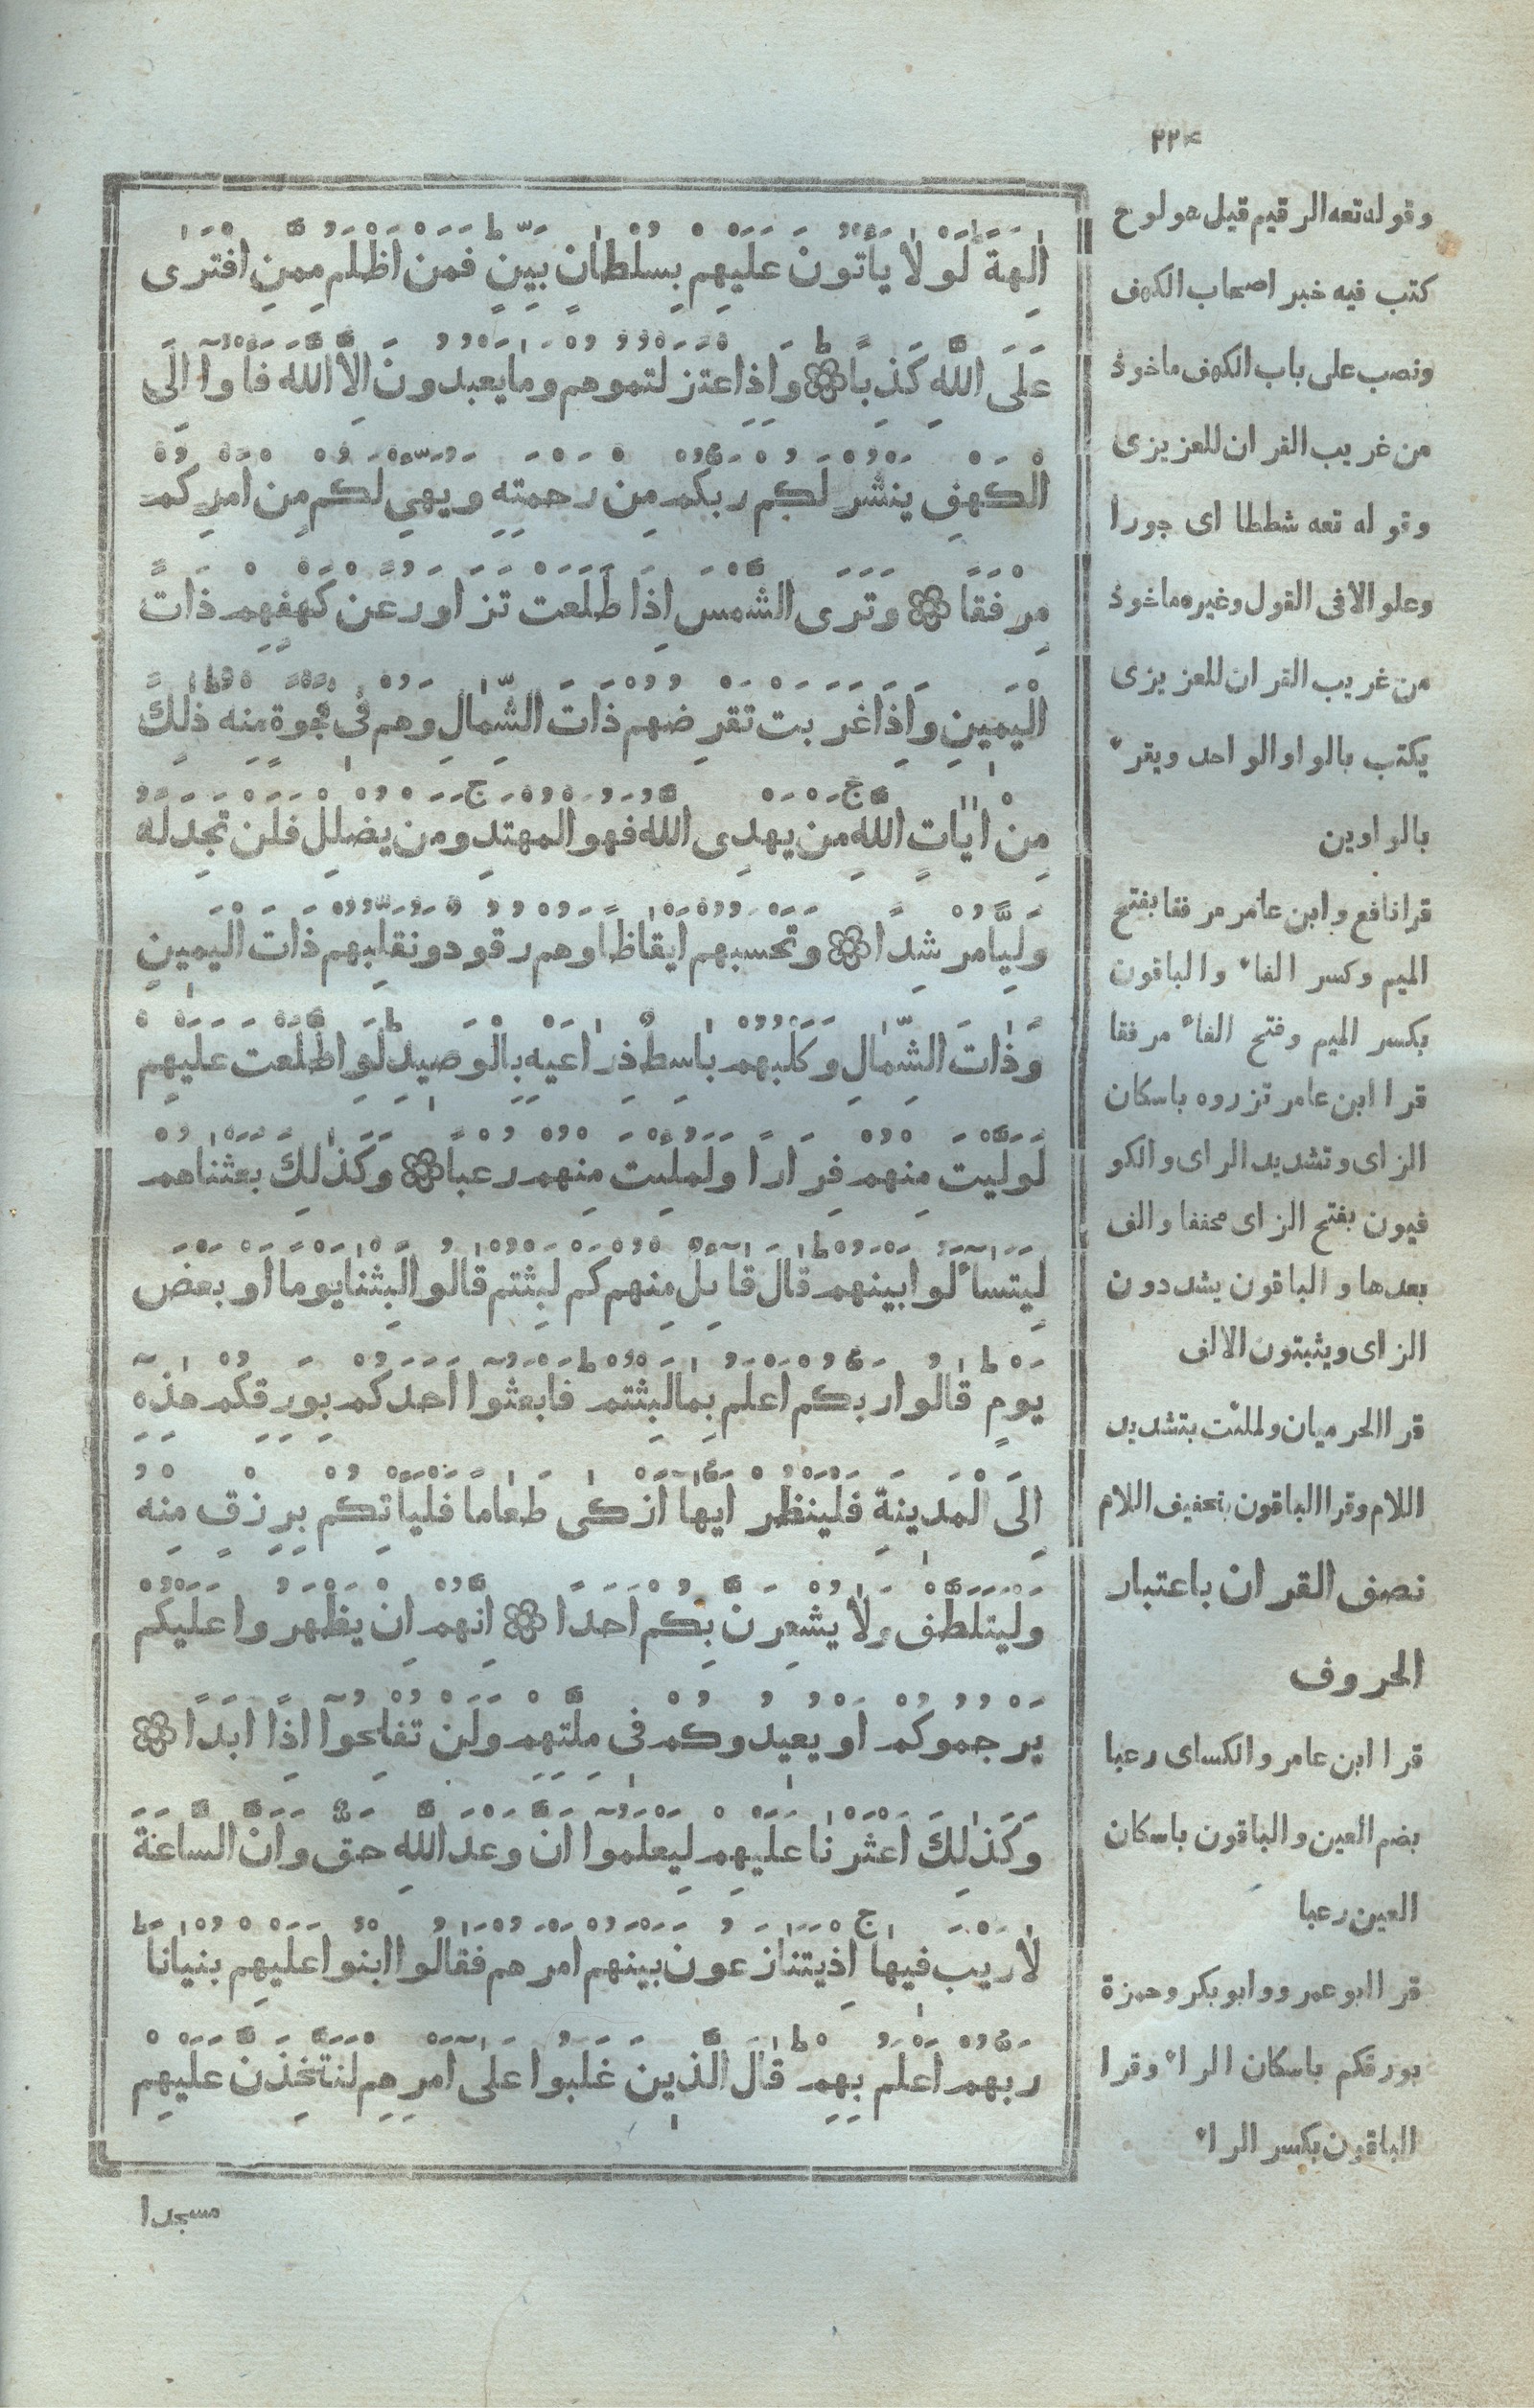 ٢٢٤
اٰلِهَةً ؕ لَوْ لَا يَأْتُونَ عَلَيْهِمْ بِسُلْطَانٍ بَيِّنٍ ؕ فَمَنْ اَظْلَمُ مِمَّنِ افْتَرٰى
عَلَى اللّٰهِ كَذِبًا ؕ ۞ وَاِذِ اعْتَزَلْتُمُوهُمْ وَمَا يَعْبُدُونَ اِلَّا اللّٰهَ فَأْوٗٓا اِلَى
الْكَهْفِ يَنْشُرْ لَكُمْ رَبُّكُمْ مِنْ رَحْمَتِهٖ وَيُهَيِّئْ لَكُمْ مِنْ اَمْرِكُمْ
مِرْفَقًا ۞ وَتَرَى الشَّمْسَ اِذَا طَلَعَتْ تَزَاوَرُ عَنْ كَهْفِهِمْ ذَاتَ
الْيَمِينِ وَاِذَا غَرَبَتْ تَقْرِضُهُمْ ذَاتَ الشِّمَالِ وَهُمْ فِى فَجْوَةٍ مِنْهُ ؕ ذٰلِكَ
مِنْ اٰيَاتِ اللّٰهِ ۚ مَنْ يَهْدِى اللّٰهُ فَهُوَ الْمُهْتَدِ ۚ وَمَنْ يُضْلِلْ فَلَنْ تَجِدَ لَهُ
وَلِيًّا مُرْشِدًا ۞ وَتَحْسَبُهُمْ اَيْقَاظًا وَهُمْ رُقُودٌ وَنُقَلِّبُهُمْ ذَاتَ الْيَمِينِ
وَذَاتَ الشِّمَالِ وَكَلْبُهُمْ بَاسِطٌ ذِرَاعَيْهِ بِالْوَصِيدِ ؕ لَوِ اطَّلَعْتَ عَلَيْهِمْ
لَوَلَّيْتَ مِنْهُمْ فِرَارًا وَلَمُلِئْتَ مِنْهُمْ رُعْبًا ۞ وَكَذٰلِكَ بَعَثْنَاهُمْ
لِيَتَسَآءَلُوا بَيْنَهُمْ ؕ قَالَ قَآئِلٌ مِنْهُمْ كَمْ لَبِثْتُمْ قَالُوا لَبِثْنَا يَوْمًا اَوْ بَعْضَ
يَوْمٍ ؕ قَالُوا رَبُّكُمْ اَعْلَمُ بِمَا لَبِثْتُمْ ؕ فَابْعَثُوٓا اَحَدَكُمْ بِوَرِقِكُمْ هٰذِهِٓ
اِلَى الْمَدِينَةِ فَلْيَنْظُرْ اَيُّهَآ اَزْكٰى طَعَامًا فَلْيَأْتِكُمْ بِرِزْقٍ مِنْهُ
وَلْيَتَلَطَّفْ وَلَا يُشْعِرَنَّ بِكُمْ اَحَدًا ۞ اِنَّهُمْ اِنْ يَظْهَرُوا عَلَيْكُمْ
يَرْجُمُوكُمْ اَوْ يُعِيدُوكُمْ فِى مِلَّتِهِمْ وَلَنْ تُفْلِحُوٓا اِذًا اَبَدًا ۞
وَكَذٰلِكَ اَعْثَرْنَا عَلَيْهِمْ لِيَعْلَمُوٓا اَنَّ وَعْدَ اللّٰهِ حَقٌّ وَاَنَّ السَّاعَةَ
لَا رَيْبَ فِيهَا ۚ اِذْ يَتَنَازَعُونَ بَيْنَهُمْ اَمْرَهُمْ فَقَالُوا ابْنُوا عَلَيْهِمْ بُنْيَانًا ؕ
رَبُّهُمْ اَعْلَمُ بِهِمْ ؕ قَالَ الَّذِينَ غَلَبُوا عَلٰٓى اَمْرِهِمْ لَنَتَّخِذَنَّ عَلَيْهِمْ
مسجدا
وقوله تعه الرقيم قيل هو لوح
كتب فيه خبر اصحاب الكهف
ونصب على باب الكهف ماخوذ
من غريب القران للعزيزى
وقوله تعه شططا اى جورا
وعلوا لافى القول وغيره ماخوذ
من غريب القران للعزيزى
يكتب بالواو الواحد ويقرء
بالواوين
قرا نافع وابن عامر مرفقا بفتح
الميم وكسر الفاء والباقون
بكسر الميم وفتح الفاء مرفقا
قرا ابن عامر تزروه باسكان
الزاى وتشديد الراى والكو
فيون بفتح الزاى مخففا والف
بعدها والباقون يشددون
الزاى ويثبتون الالف
قرا الحرميان ولملئت بتشديد
اللام وقرا الباقون بتخفيف اللام
نصف القران باعتبار
الحروف
قرا ابن عامر والكساى رعبا
بضم العين والباقون باسكان
العين رعبا
قرا ابو عمرو وابو بكر وحمزة
بورقكم باسكان الراء وقرا
الباقون بكسر الراء